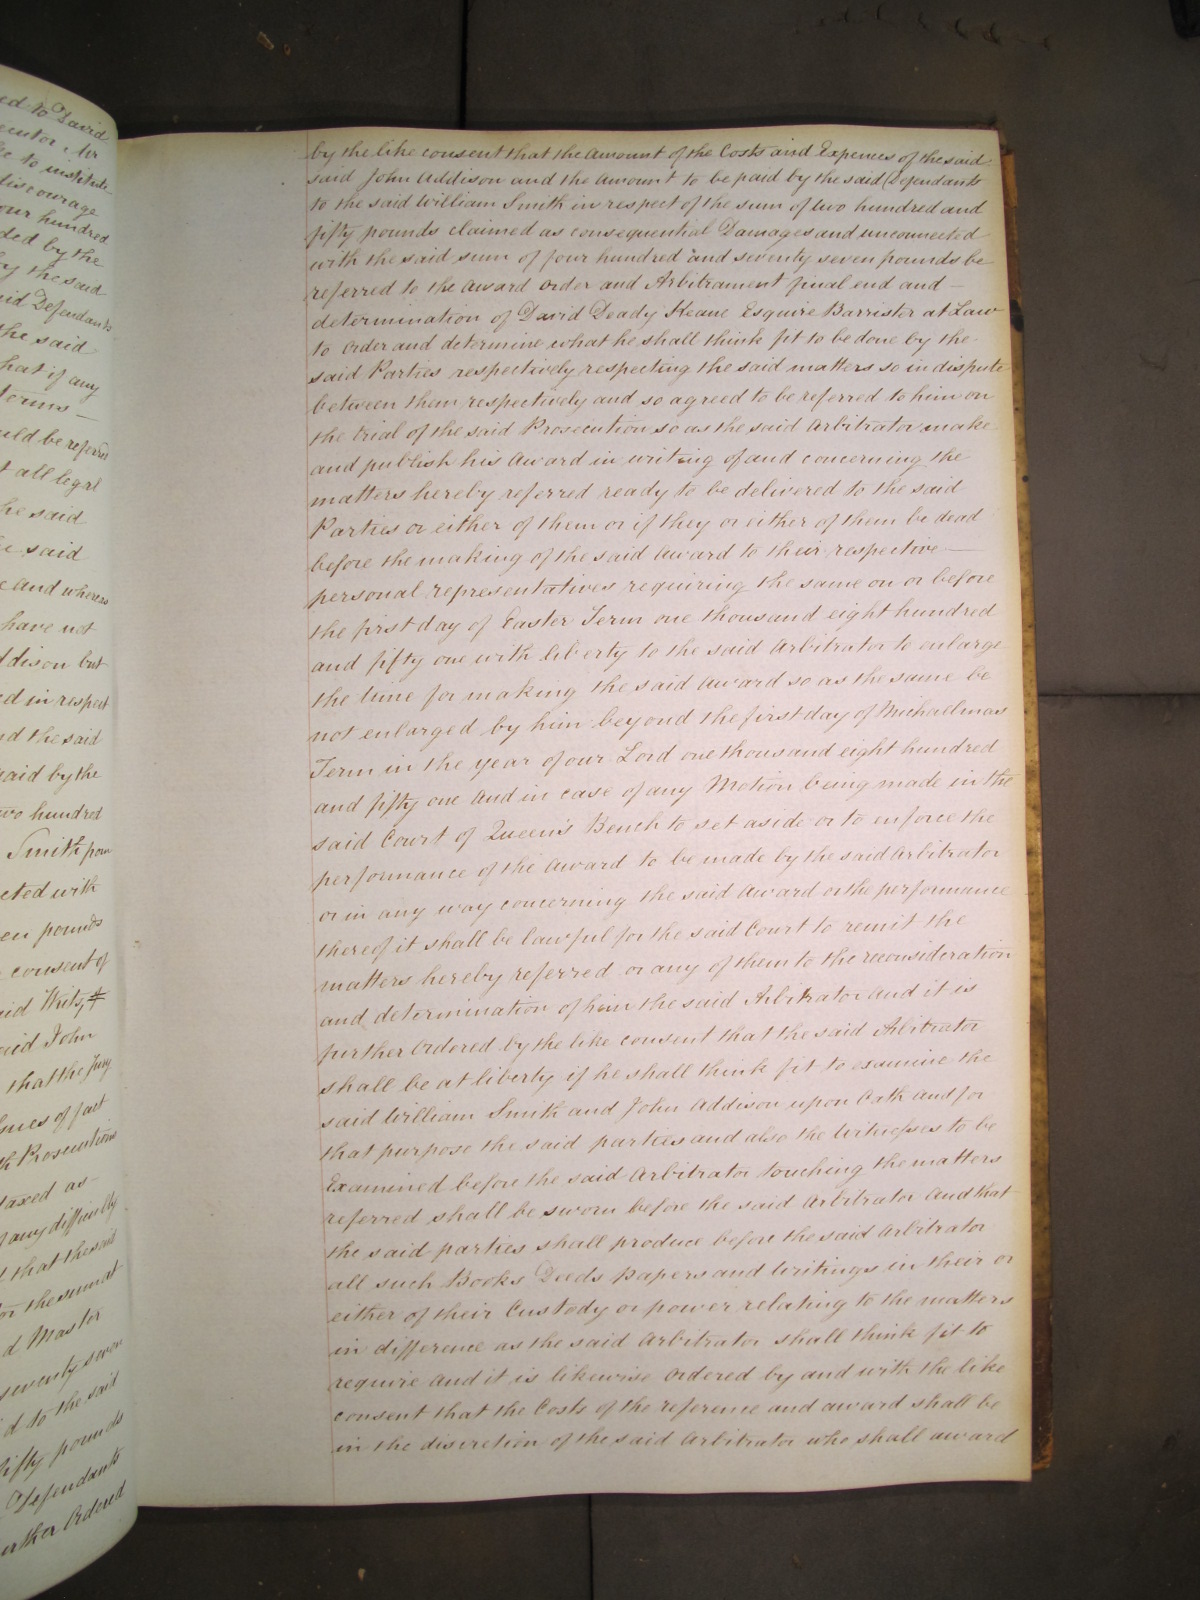 ed to David
ecutor Mr
to institute
discourage
our hundred
ded by the
by the said
said Defendants
the said
that if any
terms —
uld be referred
t all legal
he said
said
and whereas
have not
ddison but
ed in respect
nd the said
paid by the
two hundred
Smith from
cted with
en pounds
consent of
aid
said John
that the Jury
of fact
Prosecutions
taxed as
of any difficulty
that the said
for the sum at
d Master
seventy seven
d to the said
fifty pounds
Defendants
urther Ordered
by the like consent that the Amount of the Costs and Expences of the said
said John Addison and the Amount to be paid by the said Defendants
to the said William Smith in respect of the sum of two hundred and
fifty pounds claimed as consequential Damages and unconnected
with the said sum of four hundred and seventy seven pounds be
referred to the Award order and Arbitrament final end and —
determination of David Deady Keane Esquire Barrister at Law
to order and determine what he shall think fit to be done by the
said Parties respectively respecting the said matters so in dispute
between them respectively and so agreed to be referred to him on
the trial of the said Prosecution so as the said Arbitrator make
and publish his Award in writing of and concerning the
matters hereby referred ready to be delivered to the said
Parties or either of them or if they or either of them be dead
before the making of the said Award to their respective —
personal representatives requiring the same on or before
the first day of Easter Term one thousand eight hundred
and fifty one with liberty to the said Arbitrator to enlarge
the time for making the said Award so as the same be
not enlarged by him beyond the first day of Michaelmas
Term in the year of our Lord one thousand eight hundred
and fifty one And in case of any Motion being made in the
said Court of Queen's Bench to set aside or to enforce the
performance of the Award to be made by the said Arbitrator
or in any way concerning the said Award or the performance
thereof it shall be lawful for the said Court to remit the
matters hereby referred or any of them to the reconsideration
and determination of him the said Arbitrator And it is
further Ordered by the like consent that the said Arbitrator
shall be at liberty if he shall think fit to examine the
said William Smith and John Addison upon Oath and for
that purpose the said parties and also the Witnesses to be
Examined before the said Arbitrator touching the matters
referred shall be sworn before the said Arbitrator And that
the said parties shall produce before the said Arbitrator
all such Books Deeds papers and Writings in their or
either of their Custody or power relating to the matters
in difference as the said Arbitrator shall think fit to
require And it is likewise Ordered by and with the like
consent that the Costs of the reference and award shall be
in the discretion of the said Arbitrator who shall award